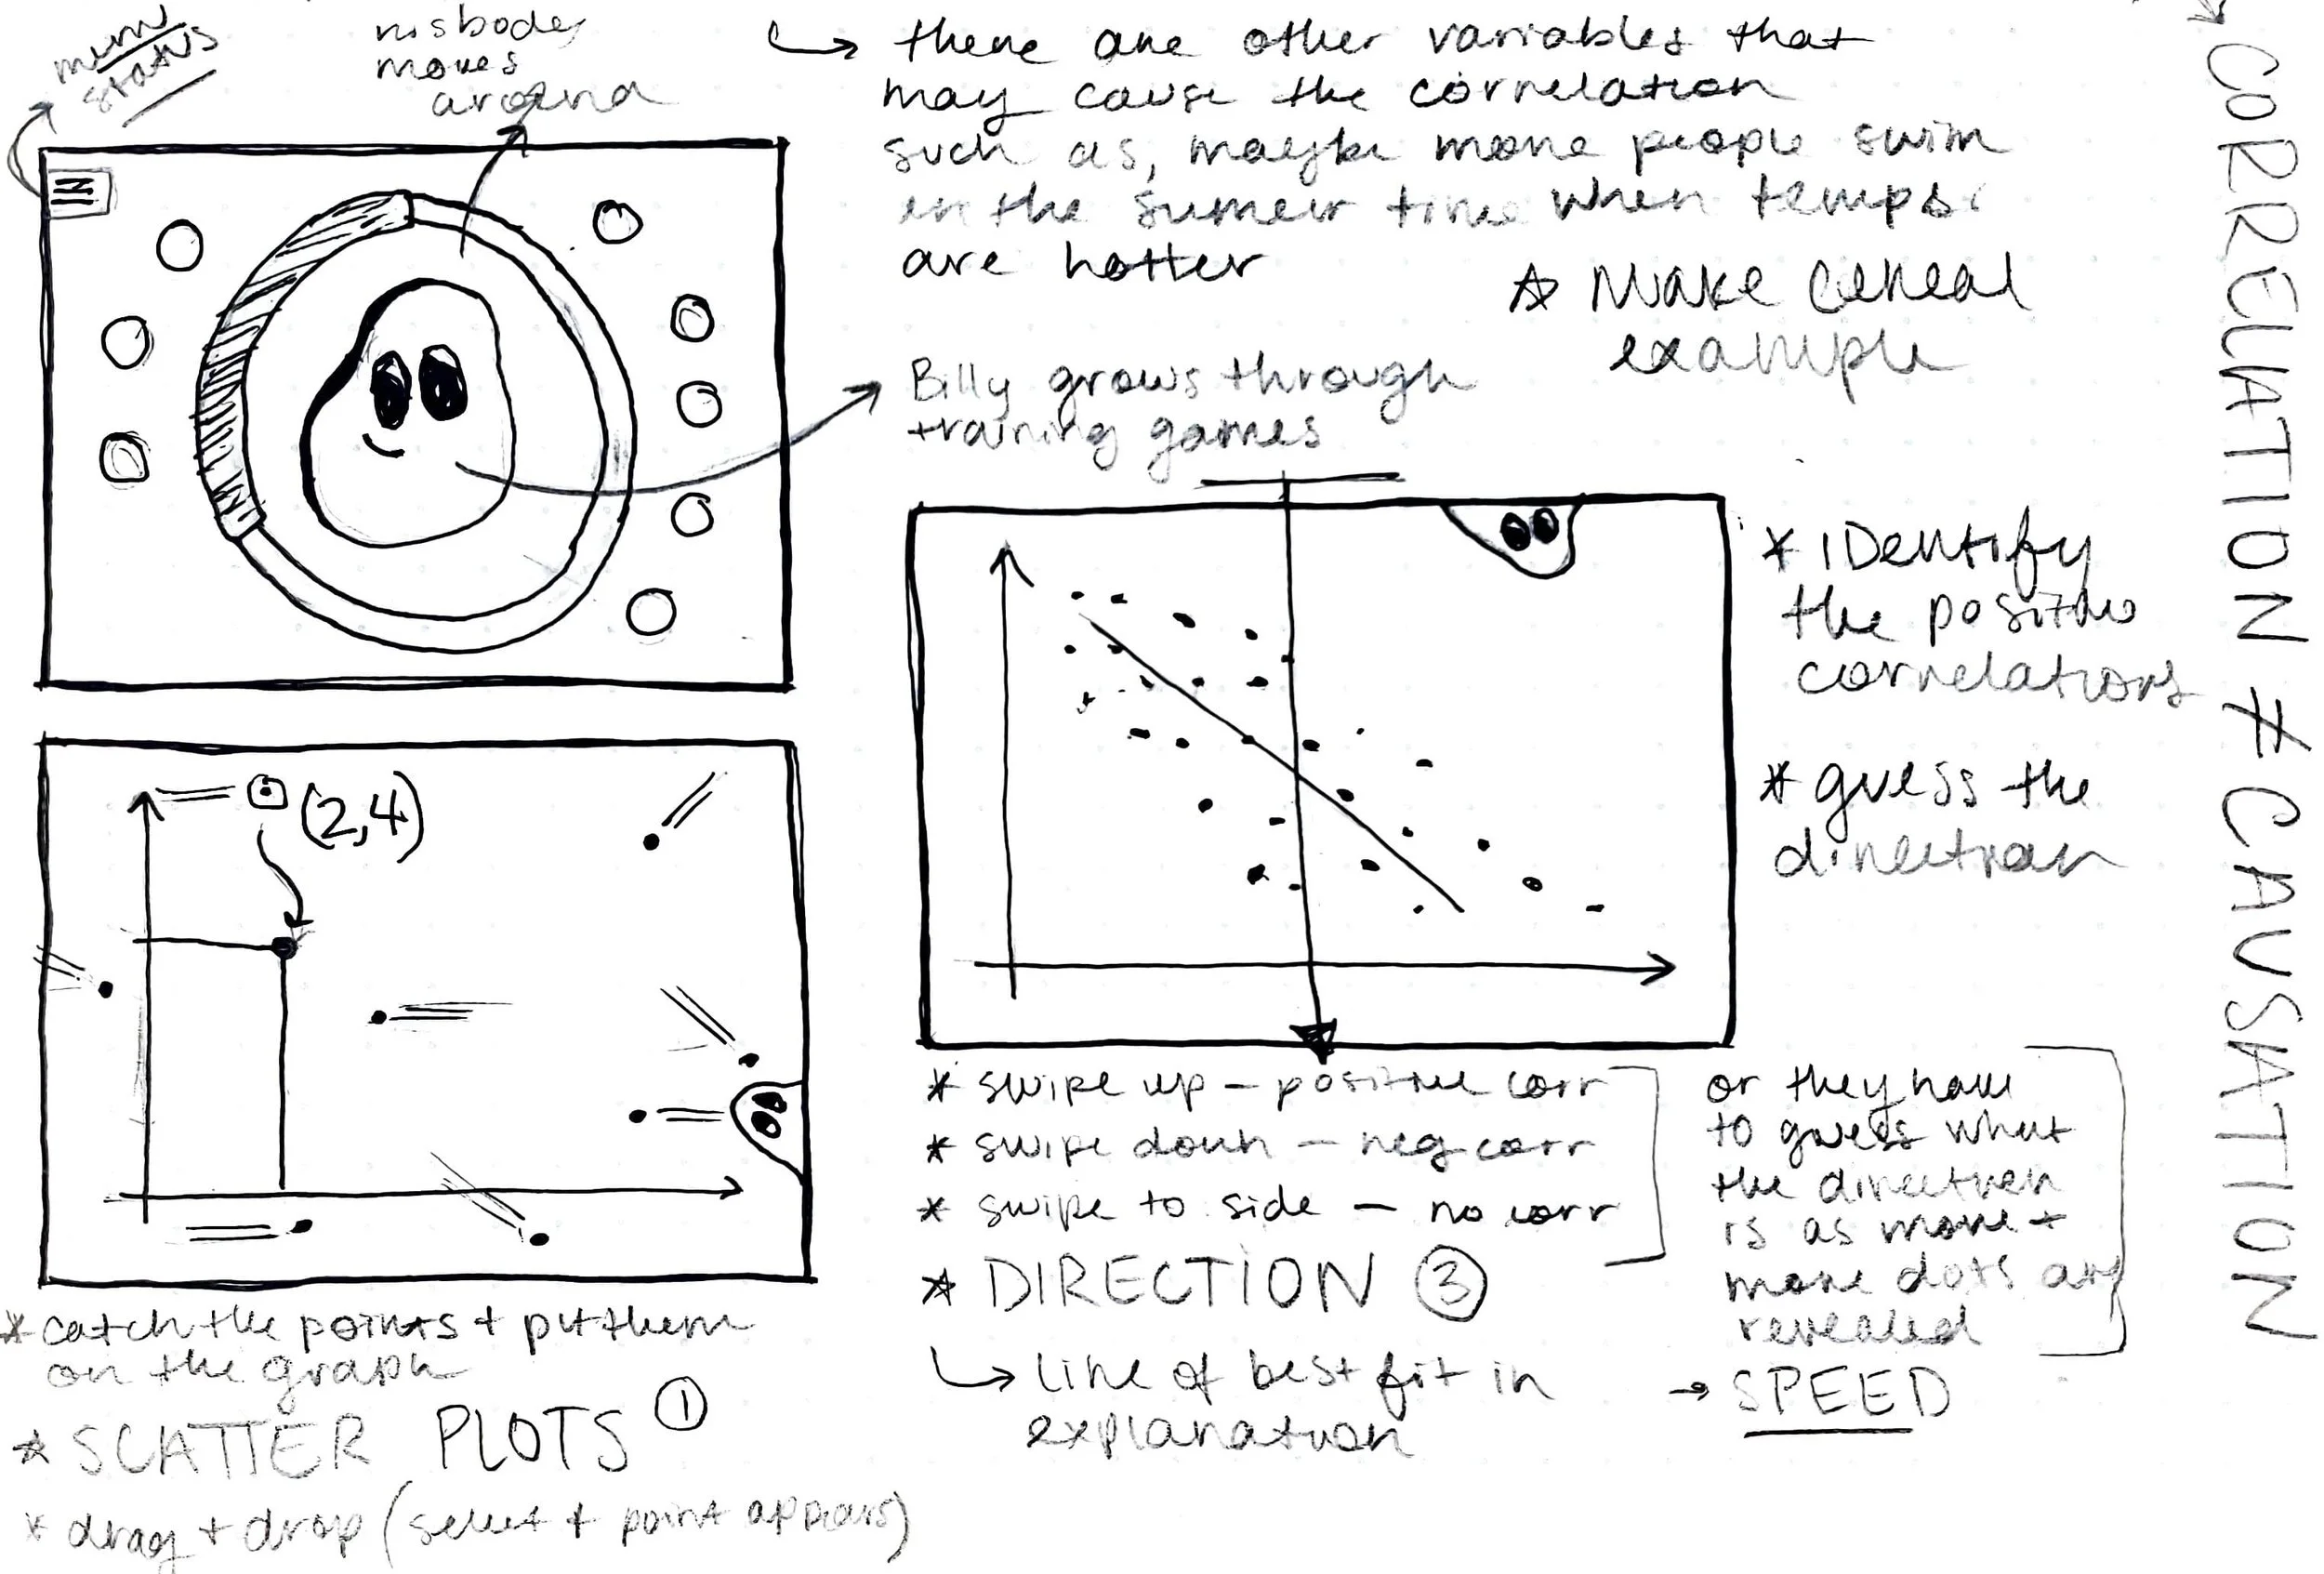 menu
status
his body
moves
around
↳ there are other variables that
may cause the correlation
such as, maybe more people swim
in the sumer time when temps
are hotter
☆ Make cereal
example
Billy grows through
training games
* IDentify
the positive
correlations
* guess the
direction
→ CORRELATION ≠ CAUSATION
(2,4)
* catch the points + put them
on the graph
* SCATTER PLOTS ①
* drag + drop (select + point appears)
* swipe up – positive corr
* swipe down – neg corr
* swipe to side – no corr
* DIRECTION ③
↳ line of best fit in
explanation
or they have
to guess what
the direction
is as more +
more dots are
revealed
→ SPEED